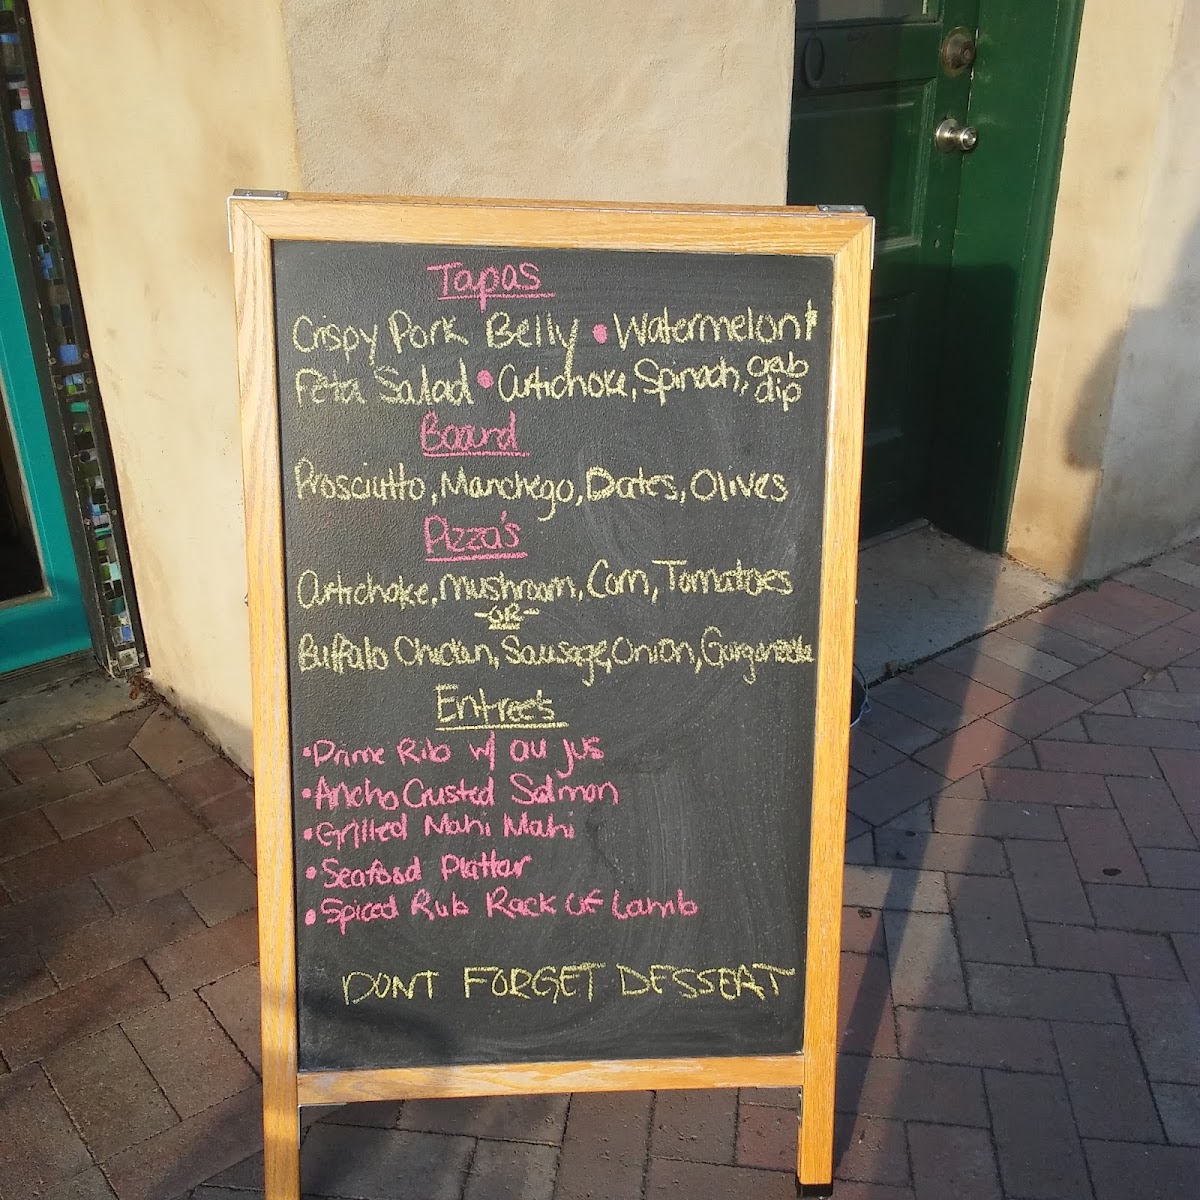 Tapas
Crispy Pork Belly • Watermelon +
Feta Salad • Artichoke, Spinach, crab dip
Board
Prosciutto, Manchego, Dates, Olives
Pizza's
Artichoke, Mushroom, Corn, Tomatoes
-OR-
Buffalo Chicken, Sausage, Onion,
Entree's
• Prime Rib w/ au jus
• Ancho Crusted Salmon
• Grilled Mahi Mahi
• Seafood Platter
• Spiced Rub Rack of Lamb
DONT FORGET DESSERT